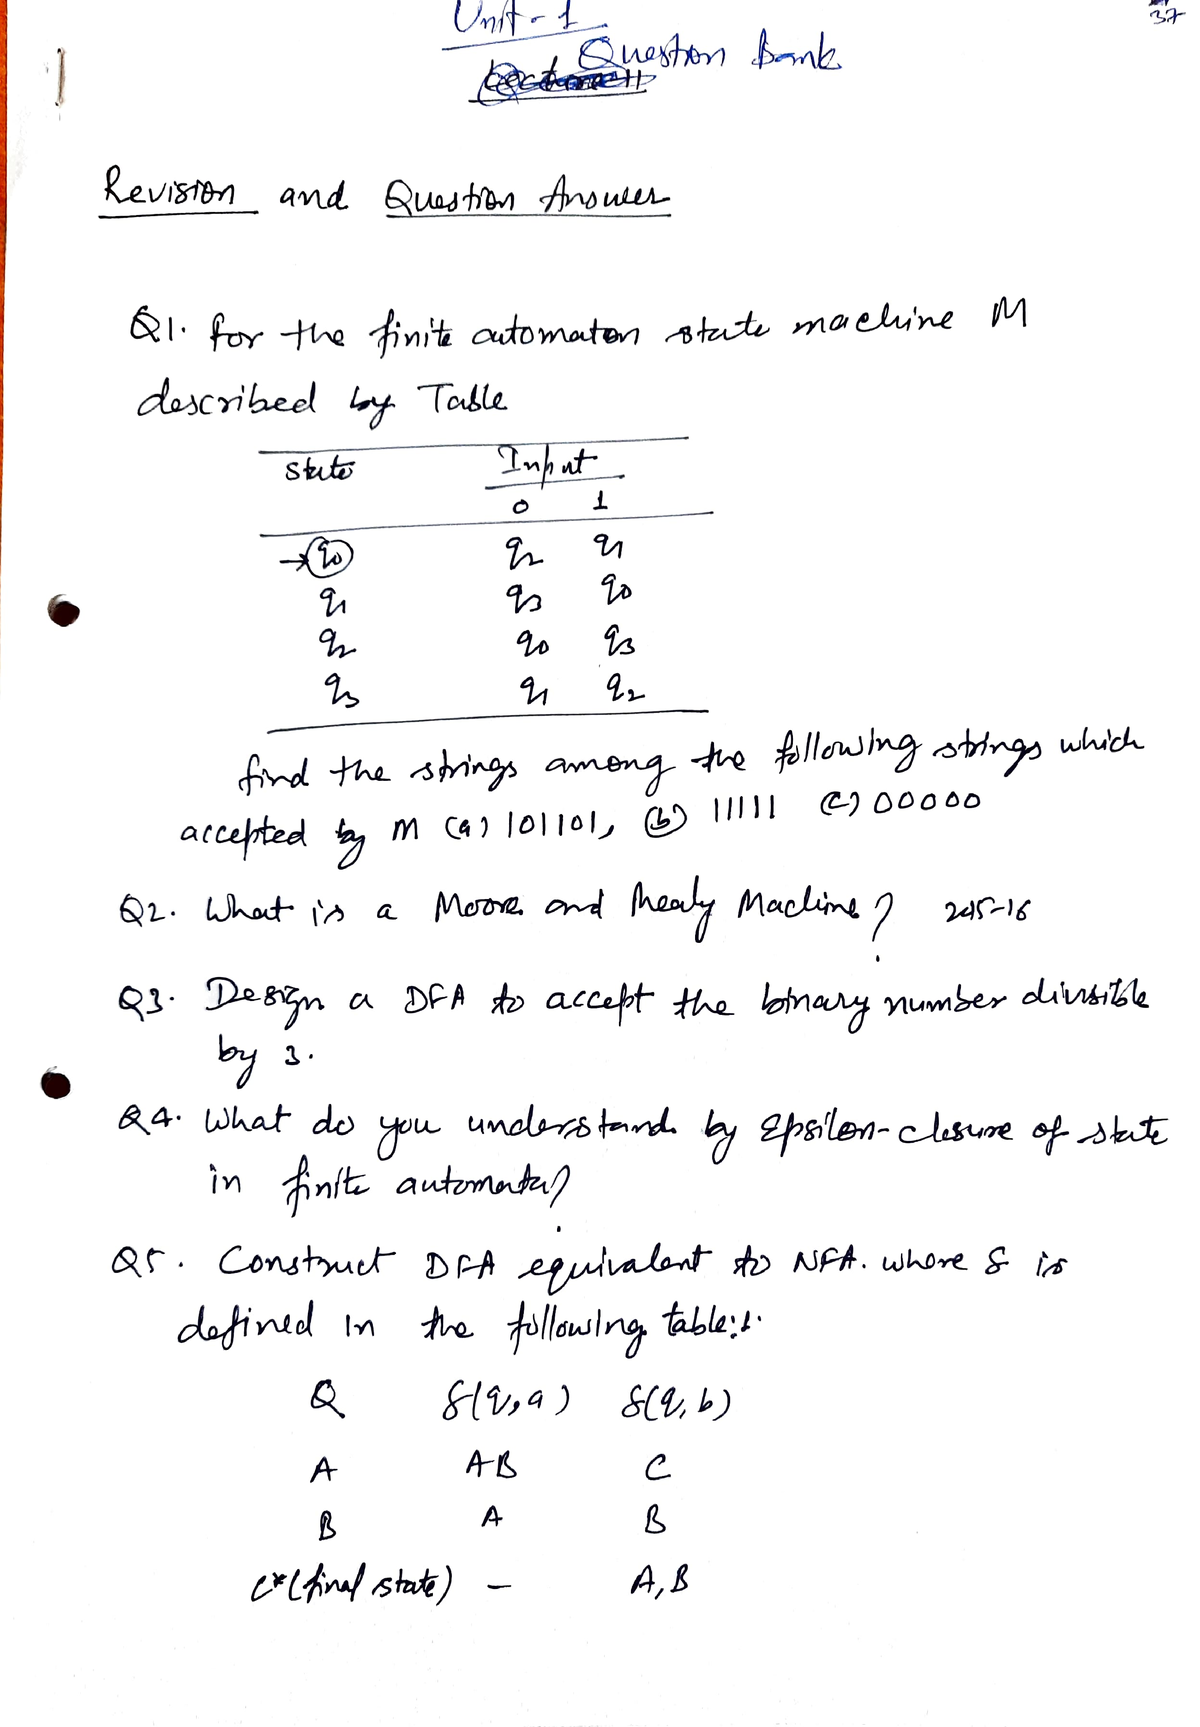 37
Unit - 1
Question Bank
Revision and Question Answer
Q1. for the finite automaton state machine M
described by Table
State Input
0 1
→q0 q2 q1
q1 q3 q0
q2 q0 q3
q3 q1 q2
find the strings among the following strings which
accepted by M (a) 101101, (b) 11111 (c) 00000
Q2. What is a Moore and Mealy Machine? 2015-16
Q3. Design a DFA to accept the binary number divisible
by 3.
Q4. What do you understand by Epsilon-closure of state
in finite automata?
Q5. Construct DFA equivalent to NFA. where δ is
defined in the following table:1.
Q δ(q,a) δ(q,b)
A AB C
B A B
C*(final state) - A,B